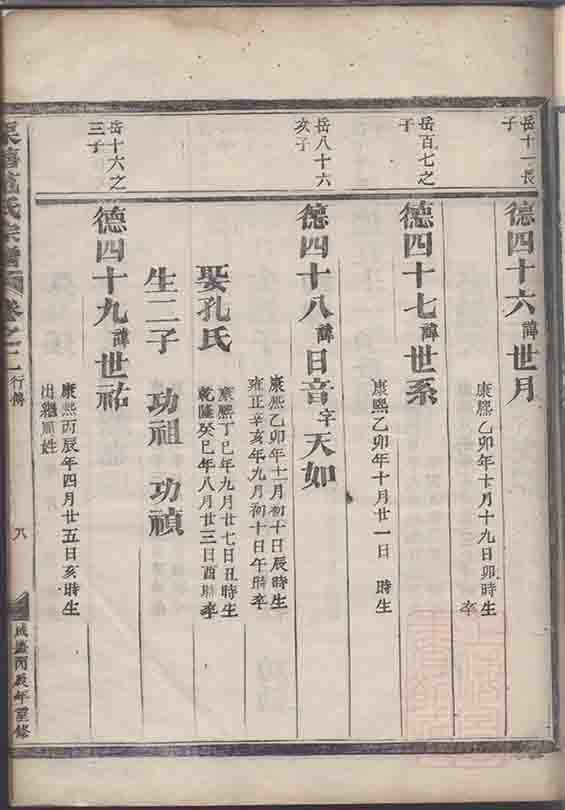 岳十一長
子
德四十六諱世月
康熙乙卯年十月十九日卯時生
卒
岳百七之
子
德四十七諱世系
康熙乙卯年十月廿一日 時生
岳八十六
亥子
德四十八諱日音字天如
康熙乙卯年十一月初十日辰時生
雍正辛亥年九月初十日午時卒
娶孔氏
康熙丁巳年九月廿七日丑時生
乾隆癸巳年八月廿三日酉時卒
生二子 功祖 功禎
岳十六之
三子
德四十九諱世祐
康熙丙辰年四月廿五日亥時生
出繼顧姓
氏宗譜 卷之二 行傳
八
咸豐丙辰年重修